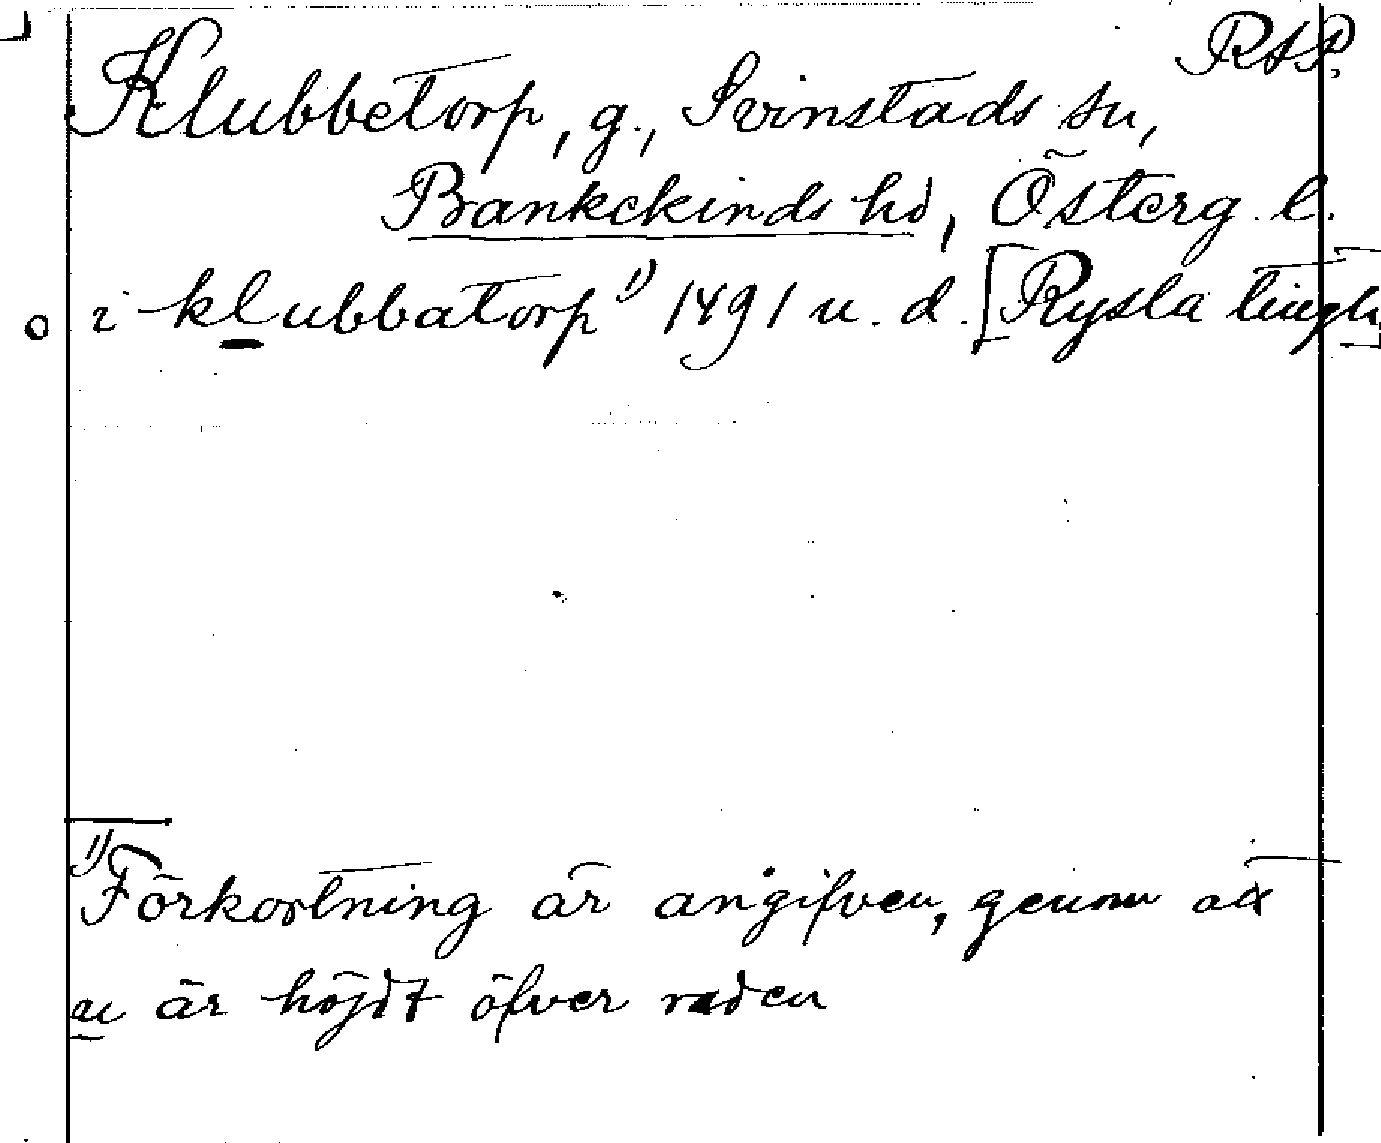 RAP.
Klubbetorp, g., Svinstads sn,
Bankekinds hd, Österg. l.
o i klubbatorp ¹⁾ 1491 u. d. [Rysla tingh]
¹⁾ Förkortning är angifven, genom att
u är höjdt öfver raden